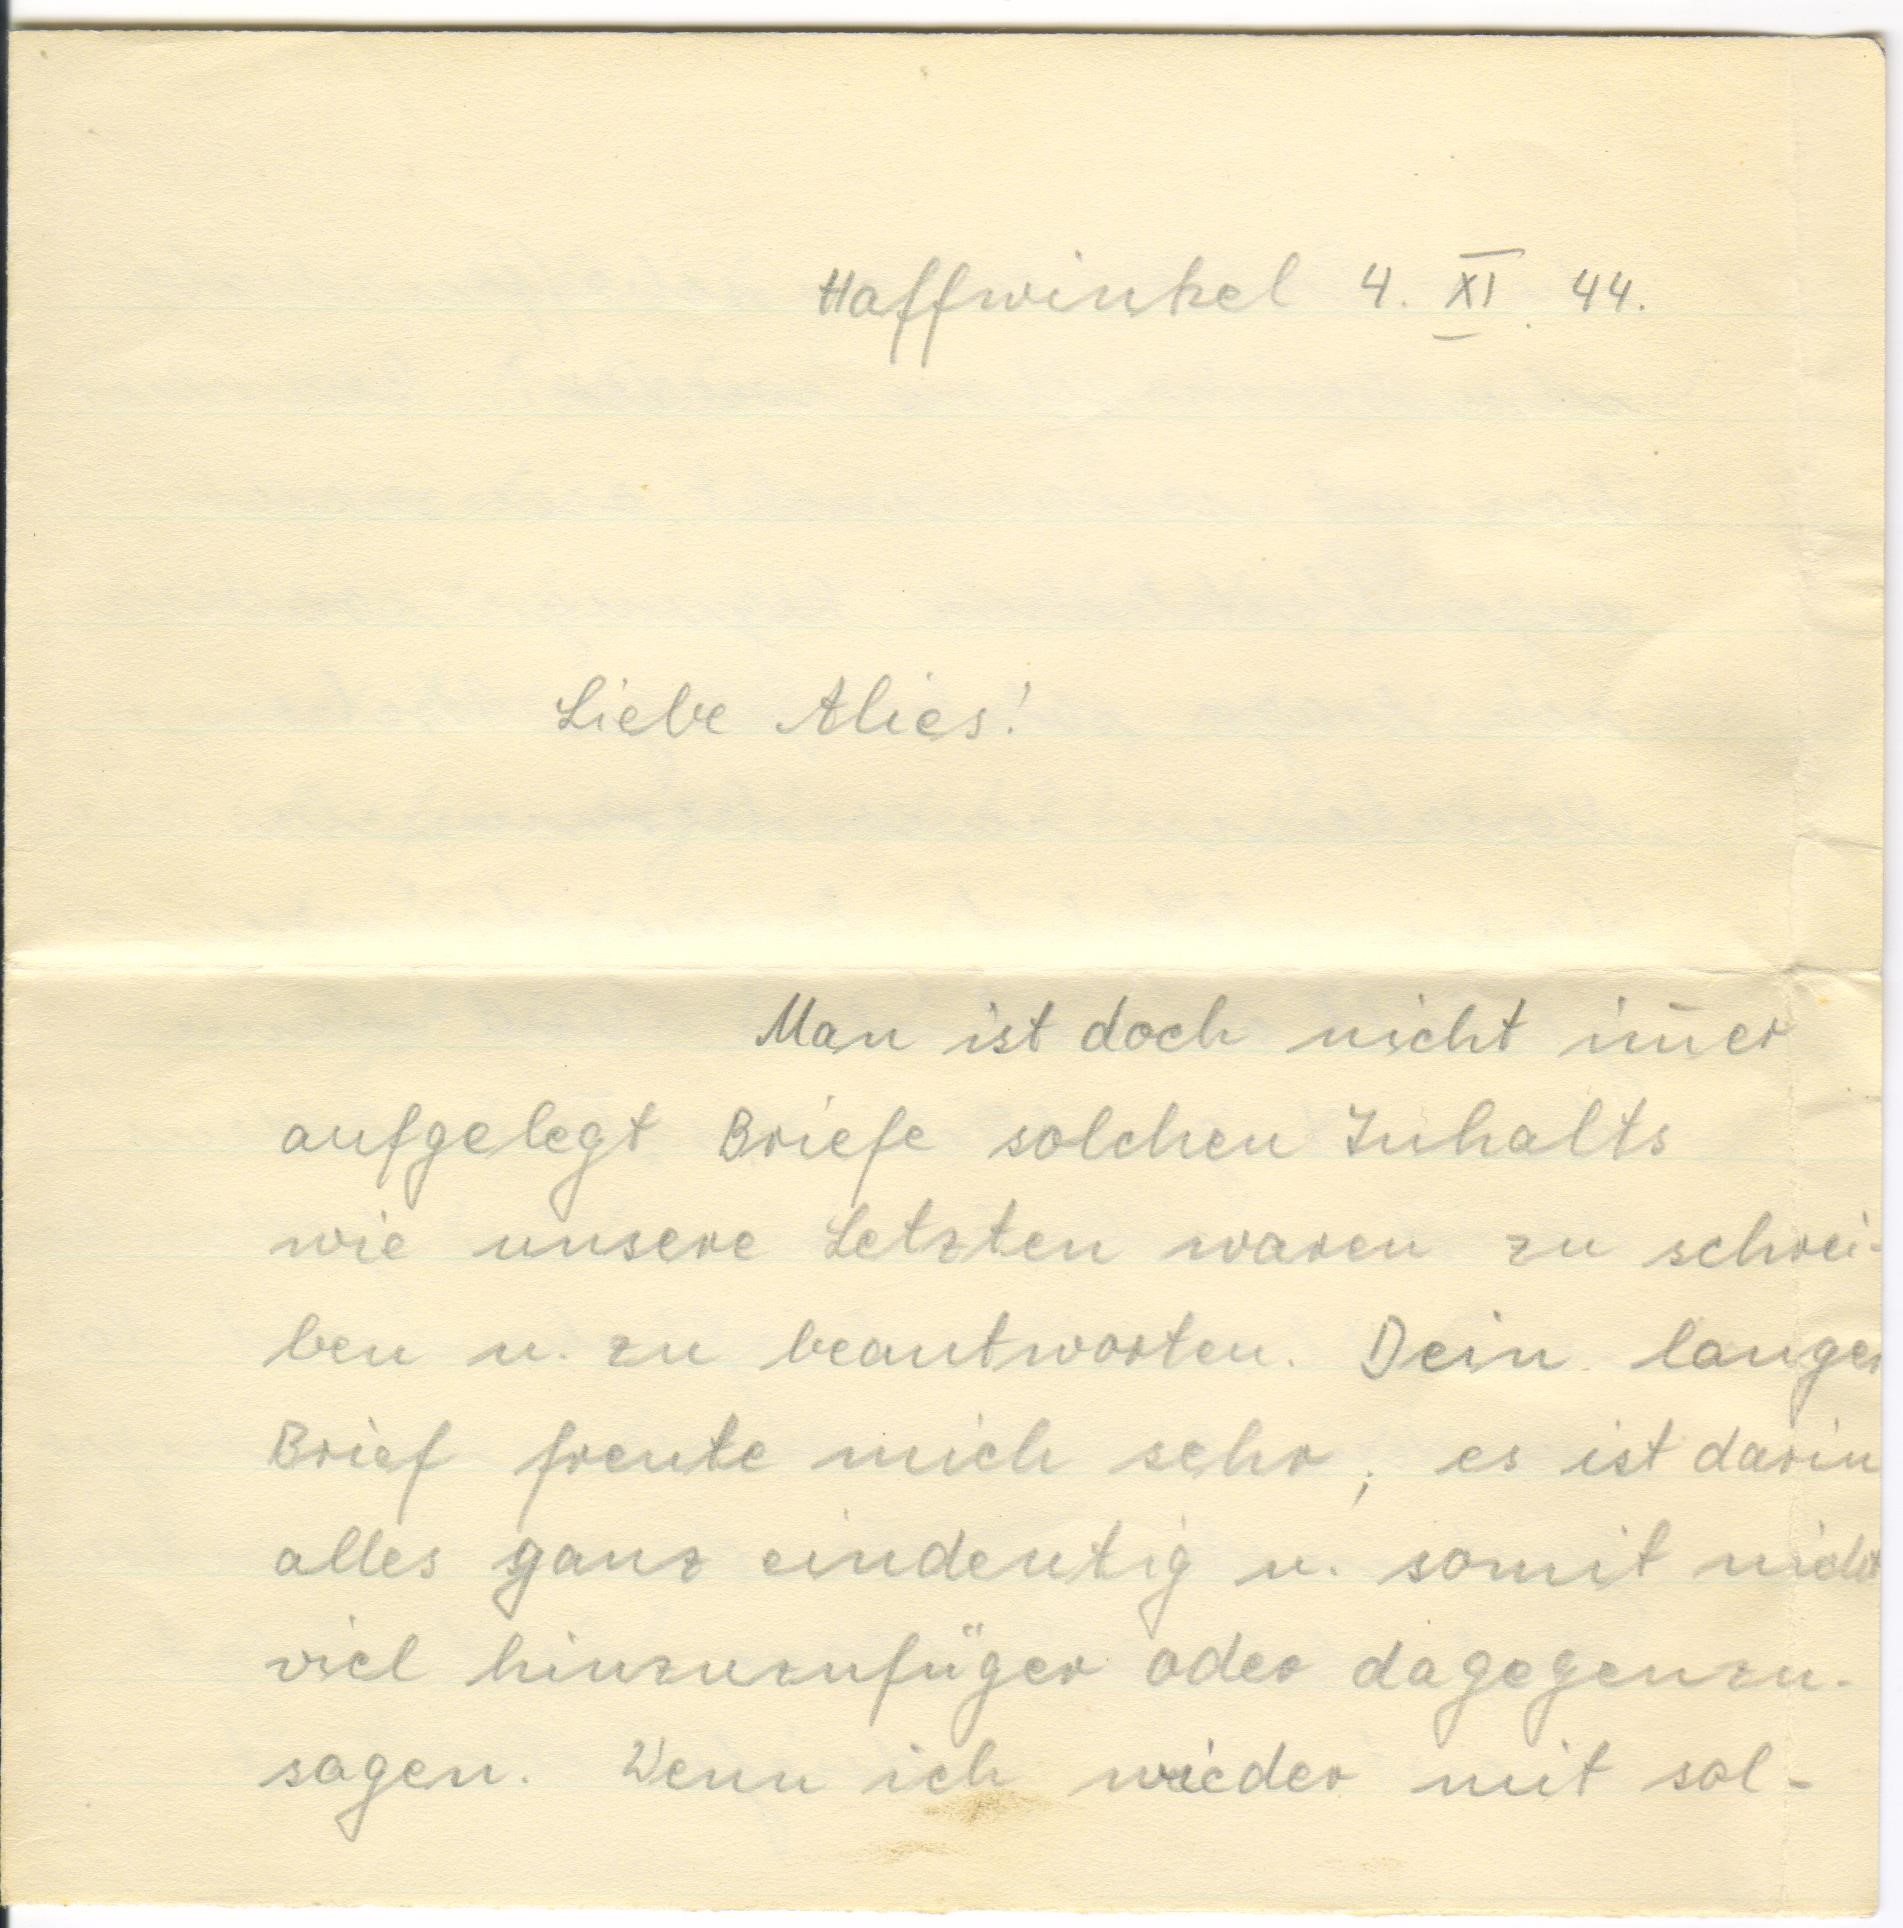 Haffwinkel 4. XI. 44.
Liebe Alies!
Man ist doch nicht im̅er
aufgelegt Briefe solchen Inhalts
wie unsere Letzten waren zu schrei-
ben u. zu beantworten. Dein langer
Brief freute mich sehr, es ist darin
alles ganz eindeutig u. somit nicht
viel hinzuzufüger oder dagegenzu-
sagen. Wenn ich wieder mit sol-